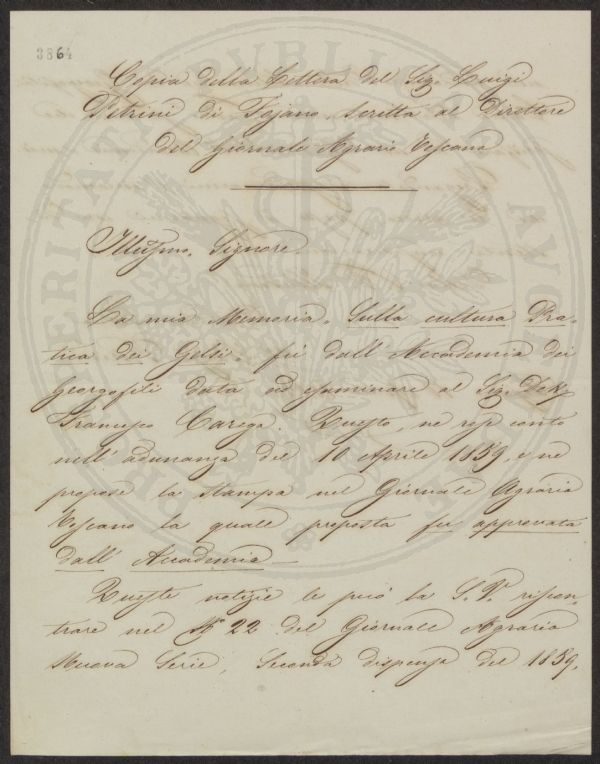 3864
Copia della Lettera del Sig. Luigi
Petrini di Tojano scritta al Direttore
del Giornale Agrario Toscano
Illustmo. Signore.
La mia Memoria. Sulla cultura Pra-
tica dei Gelsi. fù dall'Accademia dei
Georgofili data ad esaminare al Sig. Dott.
Francesco Carega. Questo, ne rese conto
nell'adunanza del 10 Aprile 1859. e ne
propose la stampa nel Giornale Agrario
Toscano la quale proposta fu approvata
dall'Accademia —
Queste notizie le può la S. V. riscon-
trare nel N.º 22 del Giornale Agrario
Nuova Serie, Seconda dispensa del 1859.